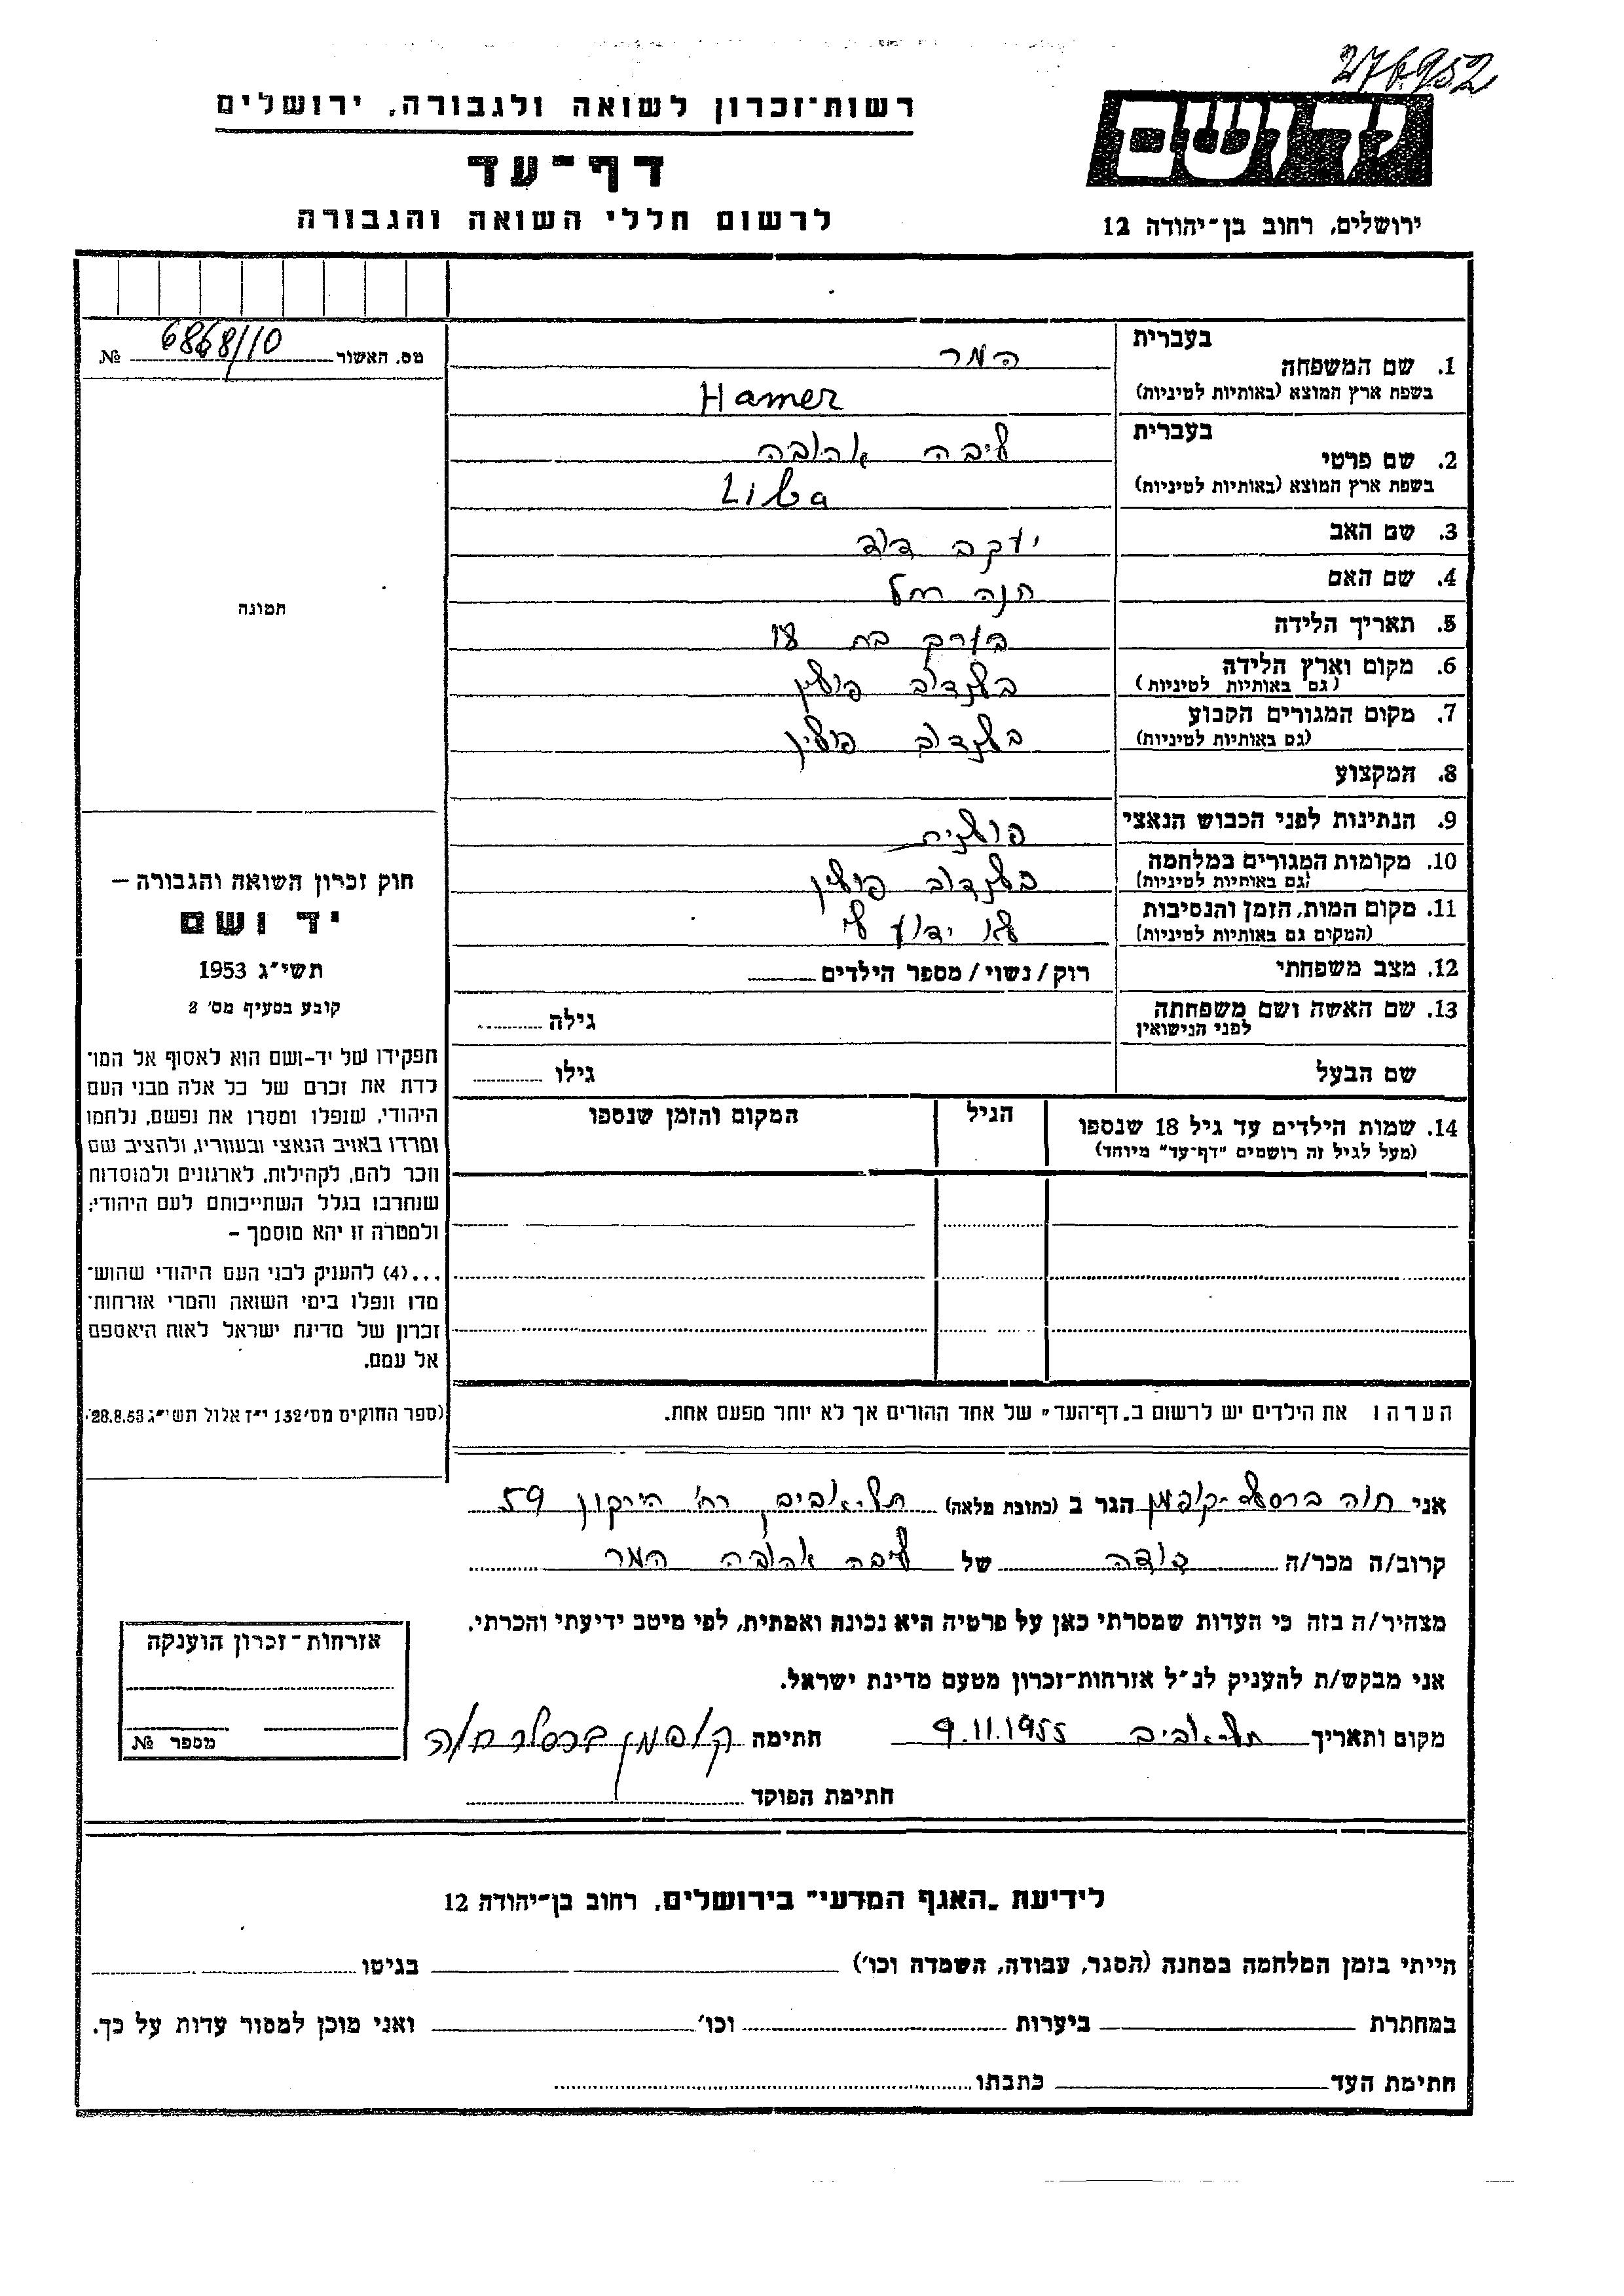 276952
רשות־זכרון לשואה ולגבורה, ירושלים
דף־עד
לרשום חללי השואה והגבורה
ידושם
ירושלים, רחוב בן־יהודה 12
מס. האשור 6868/10 №
תמונה
בעברית
1. שם המשפחה המר
בשפת ארץ המוצא (באותיות לטיניות) Hamer
בעברית
2. שם פרטי ליבה אהובה
בשפת ארץ המוצא (באותיות לטיניות) Liba
3. שם האב יעקב דוד
4. שם האם חנה רחל
5. תאריך הלידה בערך בת
6. מקום וארץ הלידה בלנדוב פולין
(גם באותיות לטיניות)
7. מקום המגורים הקבוע בלנדוב פולין
(גם באותיות לטיניות)
8. המקצוע
9. הנתינות לפני הכבוש הנאצי פולנית
10. מקומות המגורים במלחמה בלנדוב פולין
(גם באותיות לטיניות)
11. מקום המות, הזמן והנסיבות לא ידוע לי
(המקום גם באותיות לטיניות)
12. מצב משפחתי רוק/נשוי/מספר הילדים
13. שם האשה ושם משפחתה גילה
לפני הנישואין
שם הבעל גילו
14. שמות הילדים עד גיל 18 שנספו הגיל המקום והזמן שנספו
(מעל לגיל זה רושמים "דף־עד" מיוחד)
חוק זכרון השואה והגבורה —
יד ושם
תשי"ג 1953
קובע בסעיף מס' 2
תפקידו של יד-ושם הוא לאסוף אל המו־
לדת את זכרם של כל אלה מבני העם
היהודי, שנפלו ומסרו את נפשם, נלחמו
ומרדו באויב הנאצי ובעוזריו, ולהציב שם
וזכר להם, לקהילות, לארגונים ולמוסדות
שנחרבו בגלל השתייכותם לעם היהודי;
ולמטרה זו יהא מוסמך —
...(4) להעניק לבני העם היהודי שהוש־
מדו ונפלו בימי השואה והמרי אזרחות־
זכרון של מדינת ישראל לאות היאספם
אל עמם.
(ספר החוקים מס' 132 י"ז אלול תשי"ג 28.8.53)
הערה: את הילדים יש לרשום ב„דף־העד" של אחד ההורים אך לא יותר מפעם אחת.
אני חוה ברסלר-קופמן הגר ב (כתובת מלאה) תל-אביב רח' הירקון 59
קרוב/ה מכר/ה דודה של ליבה אהובה המר
מצהיר/ה בזה כי העדות שמסרתי כאן על פרטיה היא נכונה ואמתית, לפי מיטב ידיעתי והכרתי.
אני מבקש/ת להעניק לנ"ל אזרחות־זכרון מטעם מדינת ישראל.
מקום ותאריך תל-אביב 9.11.1955 חתימה קופמן ברסלר חוה
חתימת הפוקד
אזרחות־זכרון הוענקה
מספר №
לידיעת „האגף המדעי" בירושלים, רחוב בן־יהודה 12
הייתי בזמן המלחמה במחנה (הסגר, עבודה, השמדה וכו') בגיטו
במחתרת ביערות וכו' ואני מוכן למסור עדות על כך.
חתימת העד כתבתו